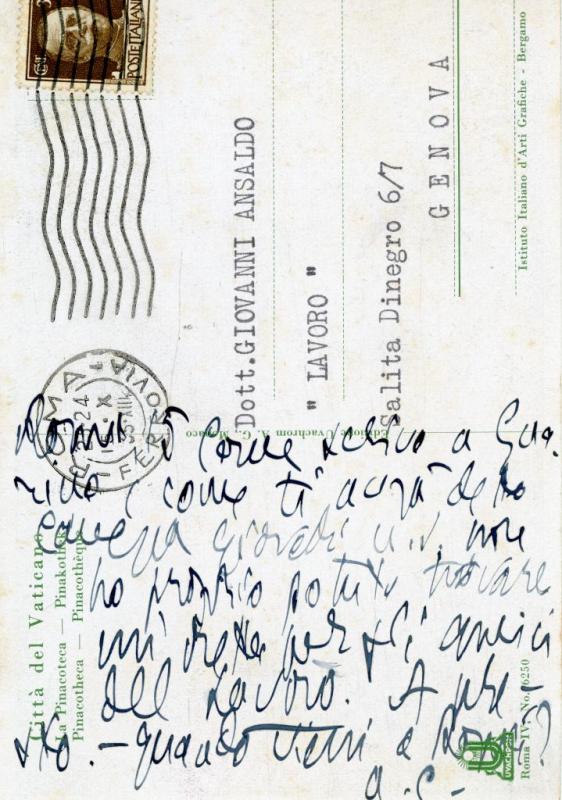 POSTE ITALIANE
ROMA FERROVIA
24
X
Dott. GIOVANNI ANSALDO
" LAVORO "
Salita Dinegro 6/7
GENOVA
Istituto Italiano d'Arti Grafiche - Bergamo
Edizione Uvachrom A. G., Monaco
Città del Vaticano
La Pinacoteca — Pinakothek
Pinacotheca — Pinacothèque
Roma 5 Come scrivo a Gua
rino e come ti avrà detto
giovedì u.s. non
ho proprio potuto trovare
per gli amici
del Lavoro. A pre-
sto. - quando vieni a Roma?
a. C-
UVACHROM
Roma IV. No. 6250